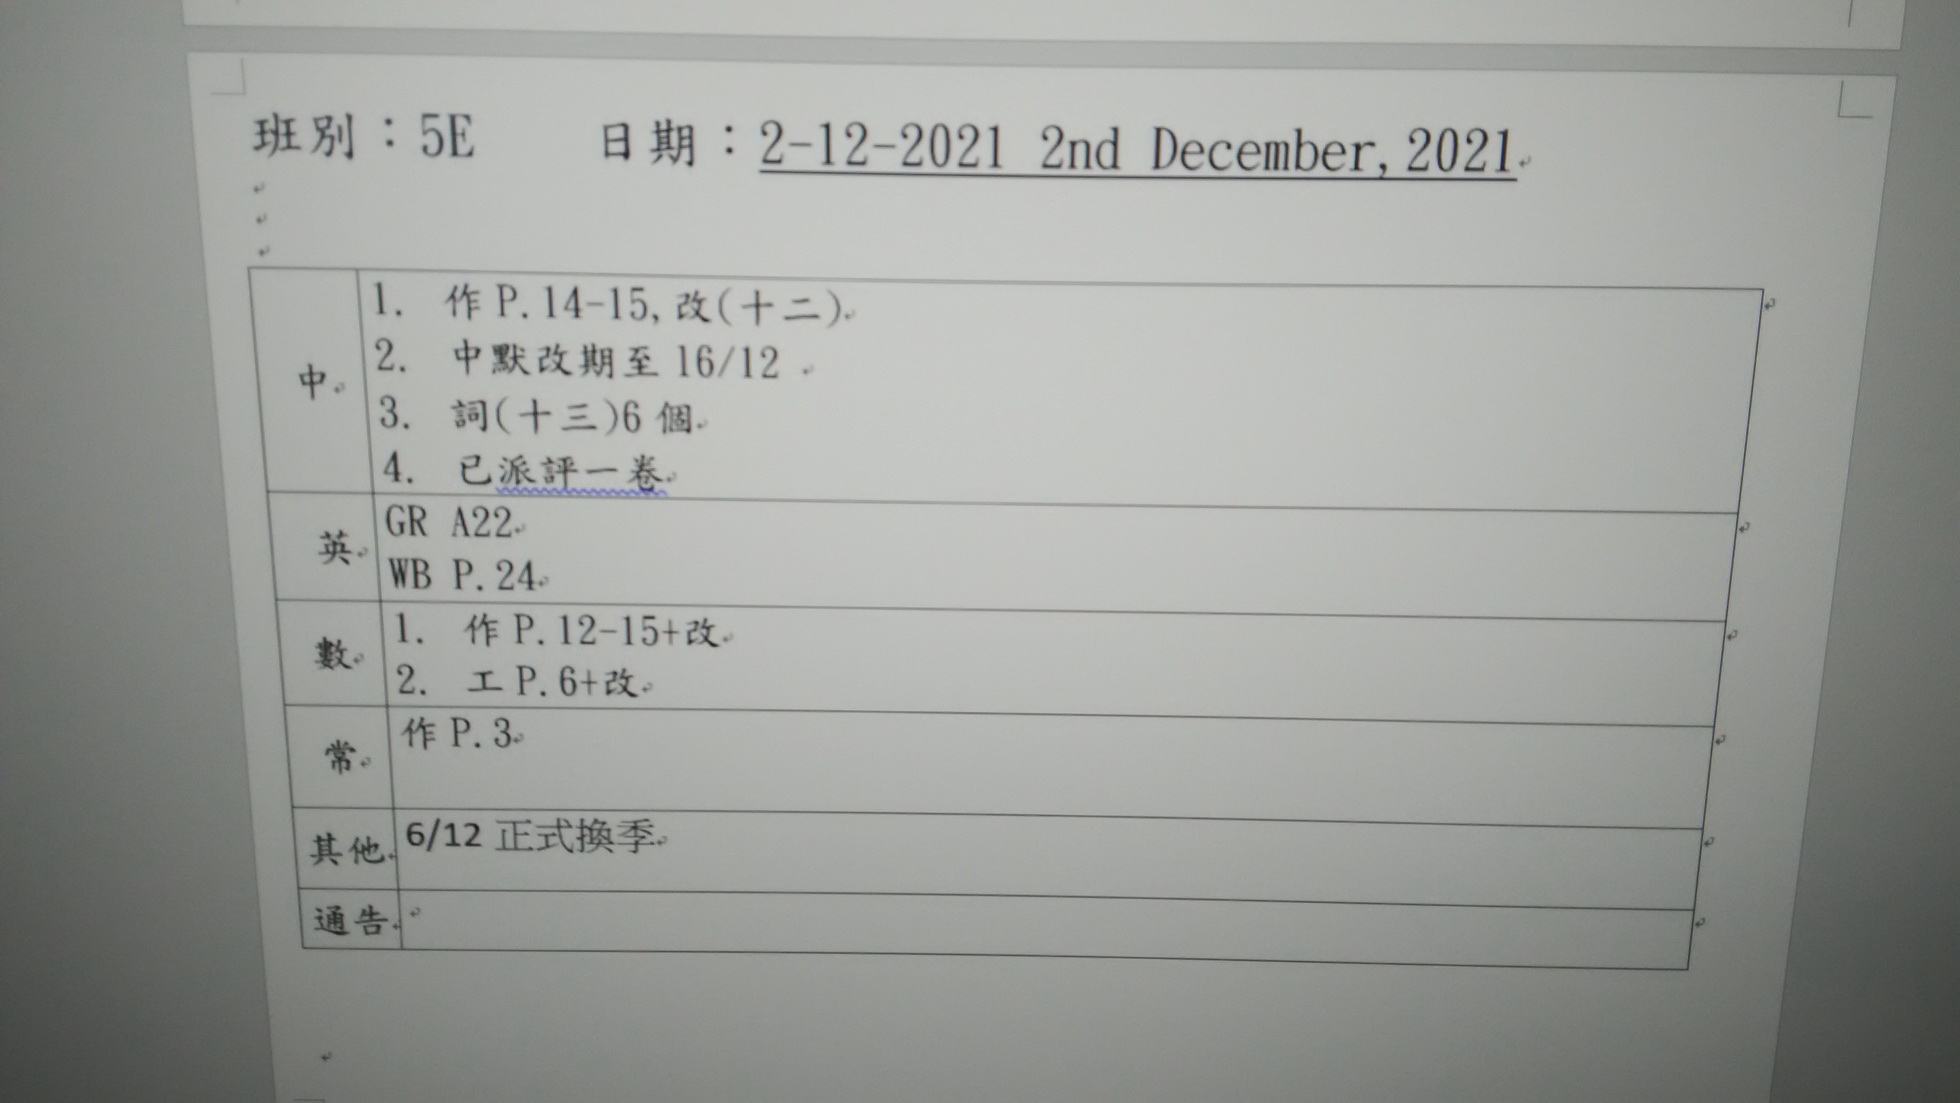 班別：5E 日期：2-12-2021 2nd December, 2021
中
1. 作 P.14-15, 改(十二)
2. 中默改期至 16/12
3. 詞(十三)6 個
4. 已派評一卷
英
GR A22
WB P.24
數
1. 作 P.12-15+改
2. 工 P.6+改
常
作 P.3
其他
6/12 正式換季
通告